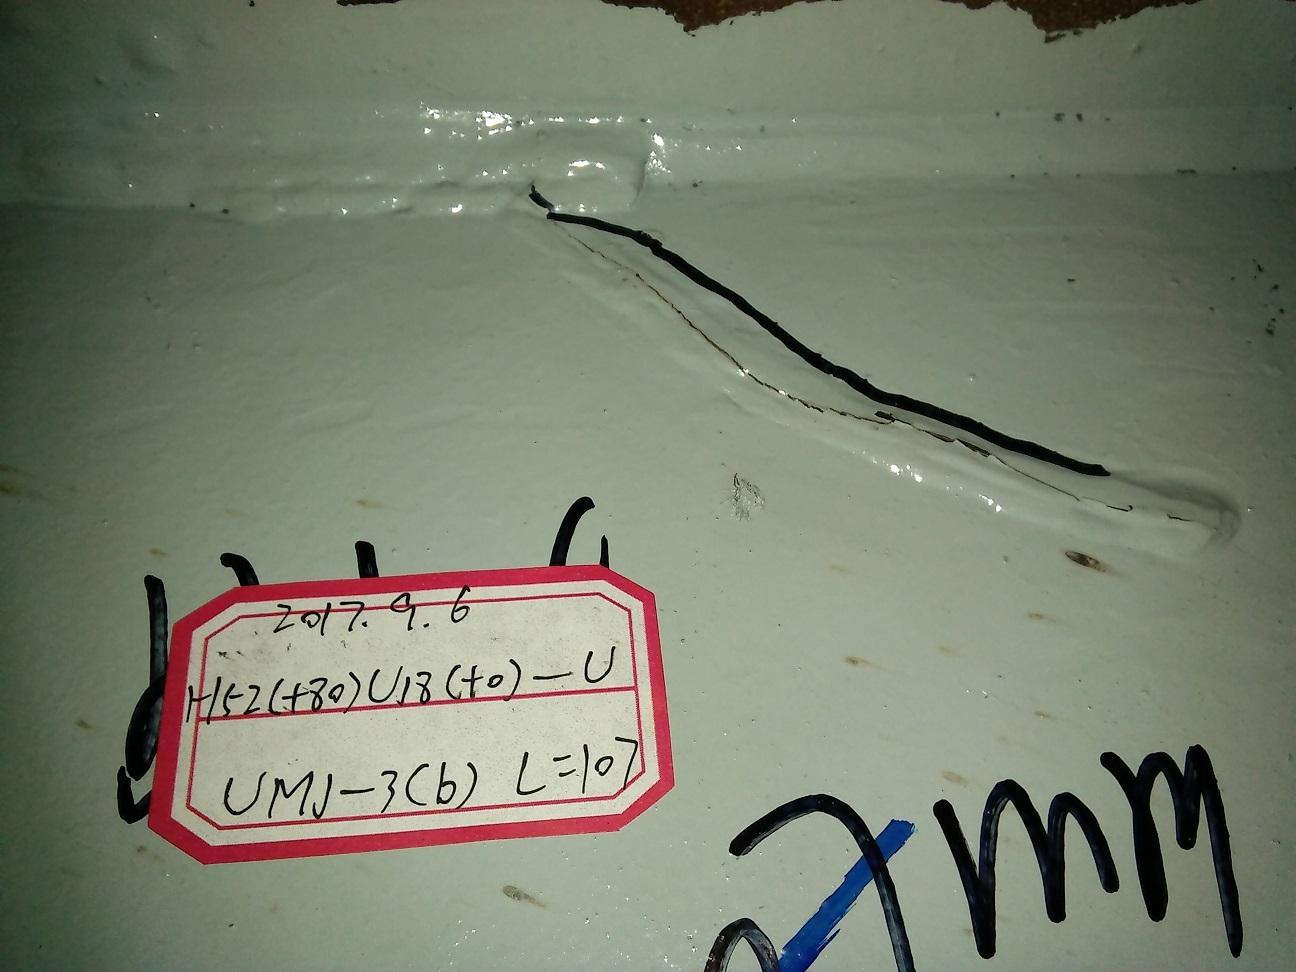 2017.9.6
H52(+80)U18(+0)-U
UMJ-3(b) L=107
mm